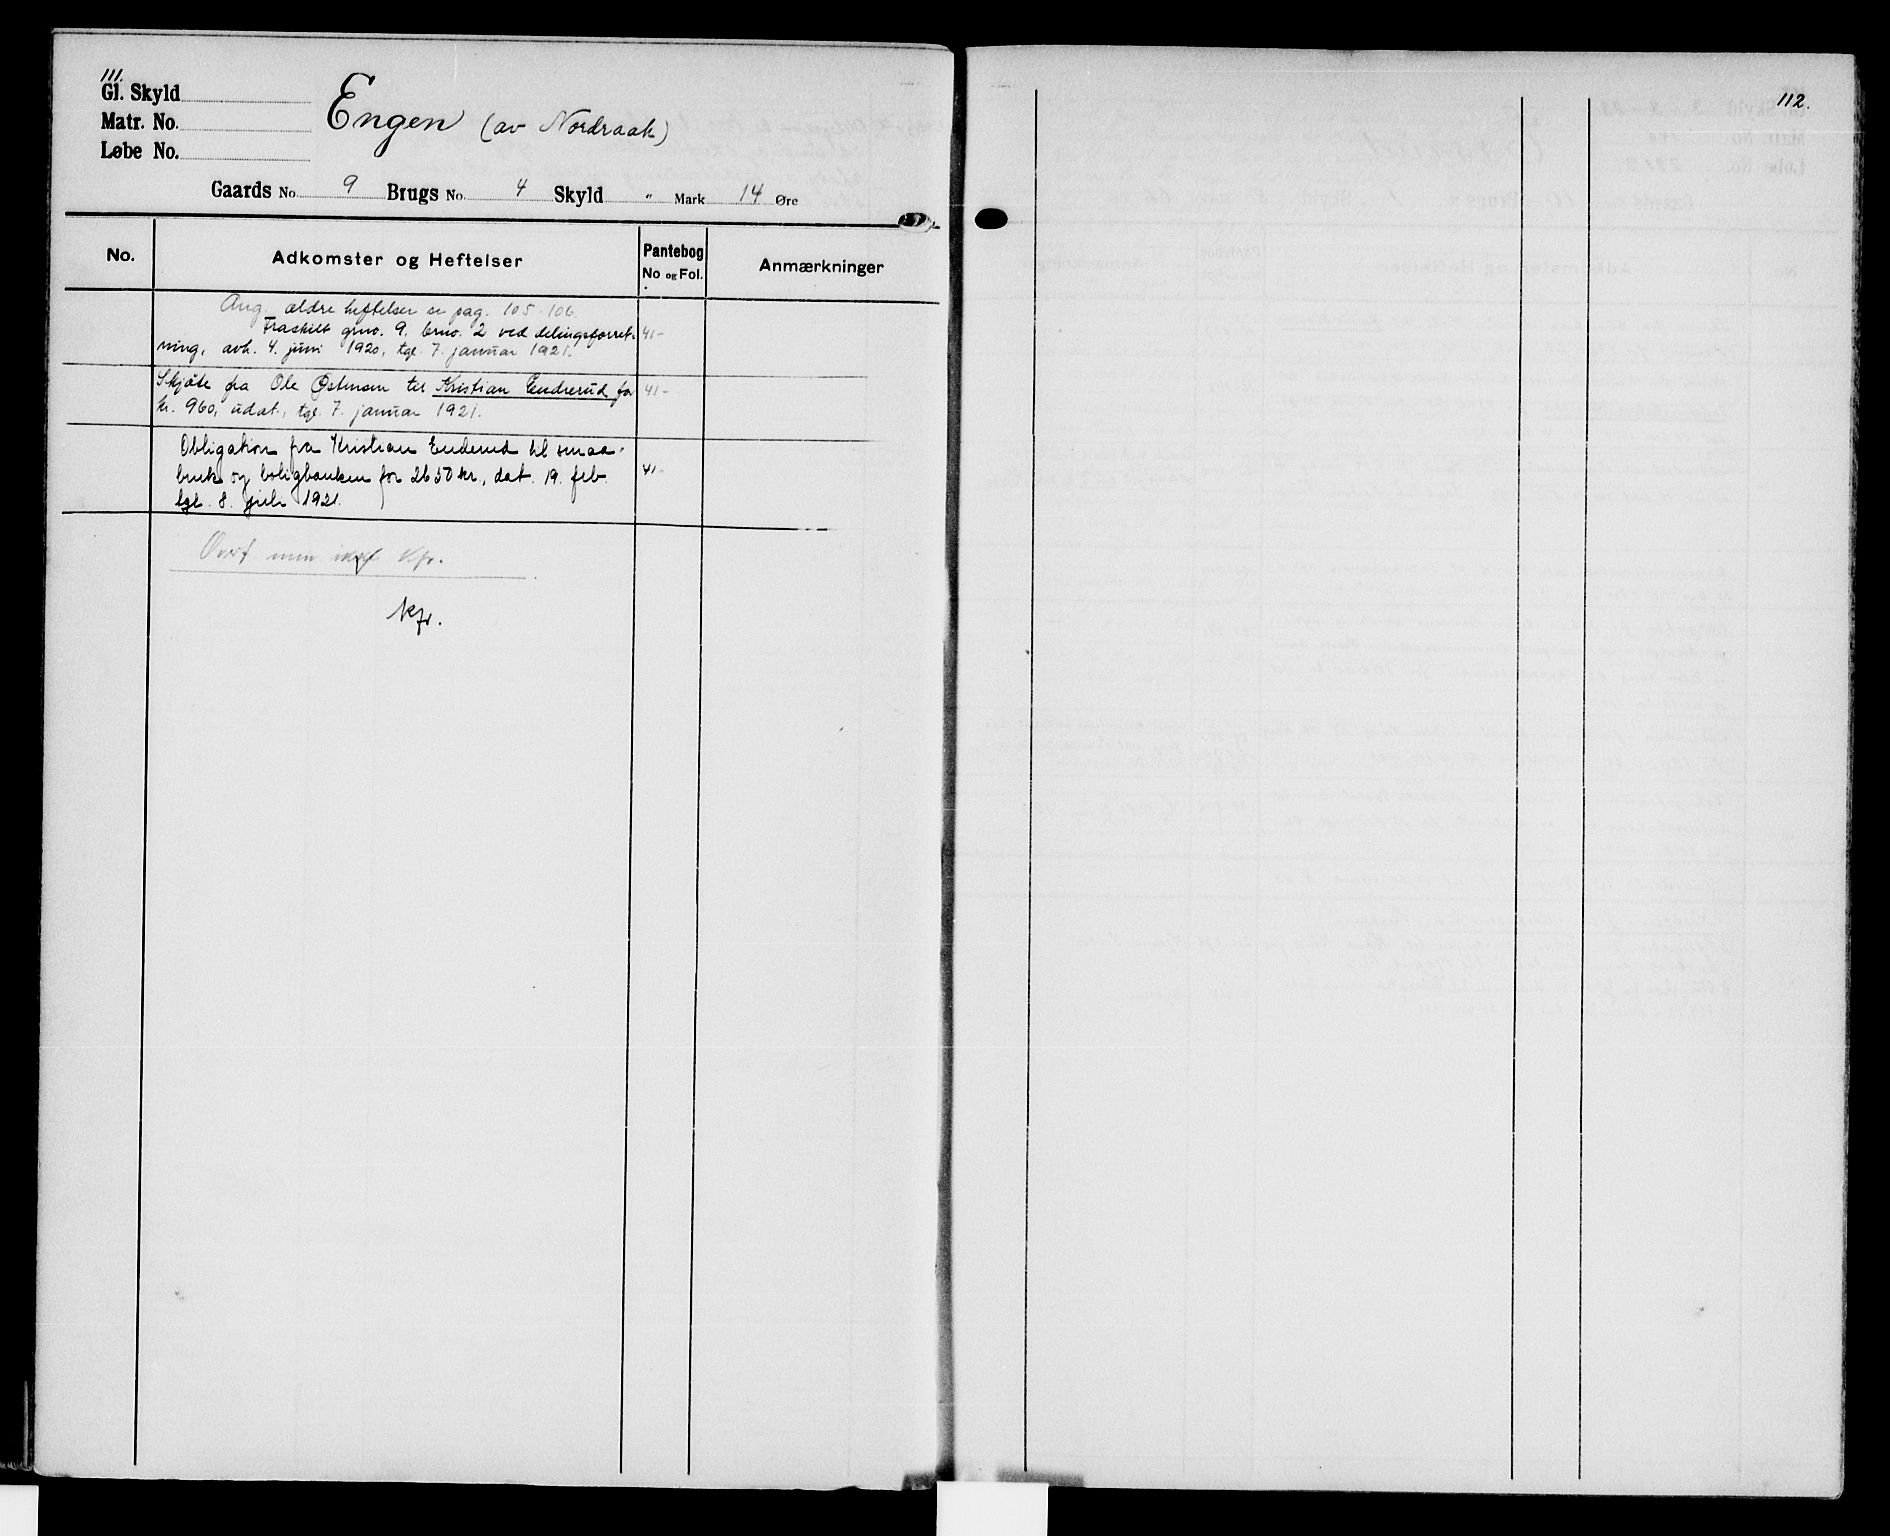 111.
Gl. Skyld
Matr. No.
Løbe No.
Engen (av Nordraak)
Gaards No. 9 Brugs No. 4 Skyld " Mark 14 Øre
No. Adkomster og Heftelser Pantebog No og Fol. Anmærkninger
Ang. ældre heftelser se pag. 105-106.
Fraskilt gno. 9. brno. 2 ved delingsforret- 41-
ning, avh. 4. juni 1920, tgl. 7. januar 1921.
Skjøte fra Ole Østensen til Kristian Endrerud for 41-
kr. 960, udat., tgl. 7. januar 1921.
Obligation fra Kristian Enderud til smaa-
bruk og boligbanken for 2650 kr., dat. 19. feb 41-
tgl. 8. juli 1921.
Overf. men Kfr.
Kfr.
112.